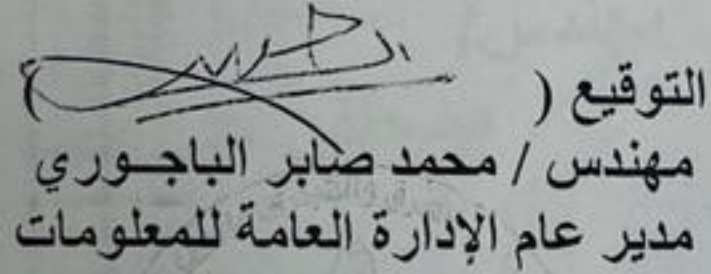 التوقيع (                )
مهندس / محمد صابر الباجـوري
مدير عام الإدارة العامة للمعلومات